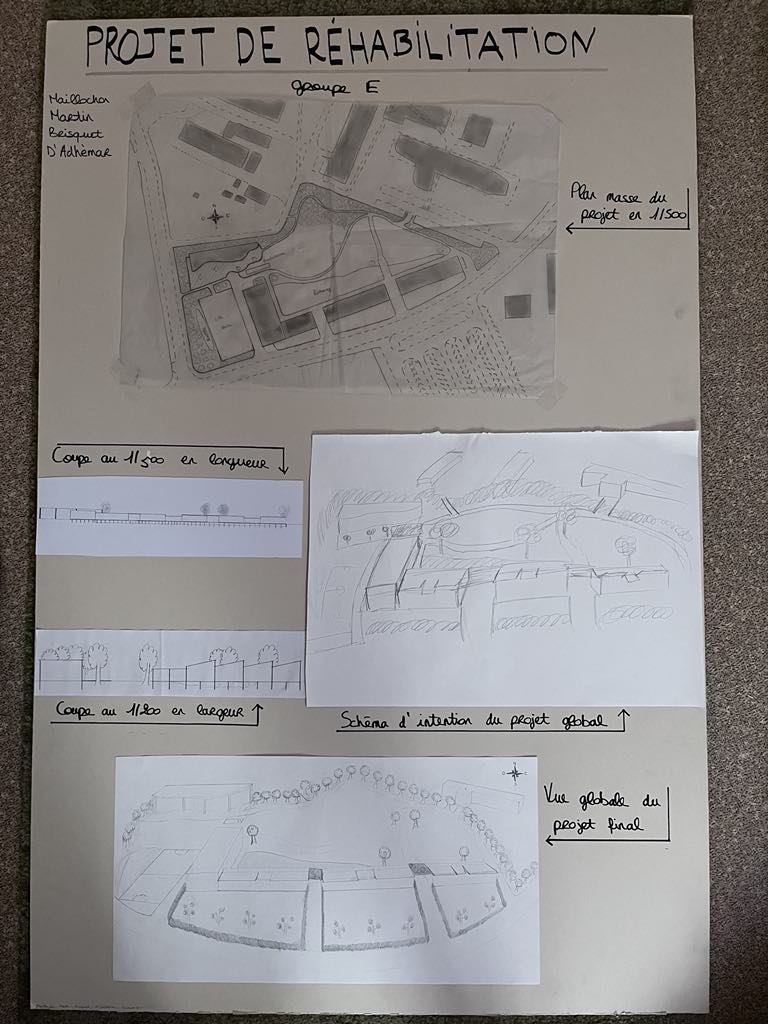 PROJET DE RÉHABILITATION
groupe E
Maillochon
Martin
Brisquet
D'Adhémar
Plan masse du
projet en 1/500
Coupe au 1/500 en longueur
Coupe au 1/200 en largeur
Schéma d'intention du projet global
Vue globale du
projet final